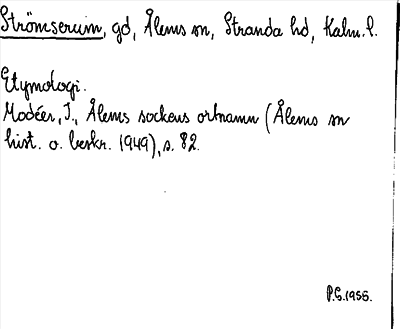 Strömserum, gd, Ålems sn, Stranda hd, Kalm. l.
Etymologi.
Modéer, I., Ålems sockens ortnamn (Ålems sn
hist. o. beskr. 1949), s. 82.
P.G. 1956.